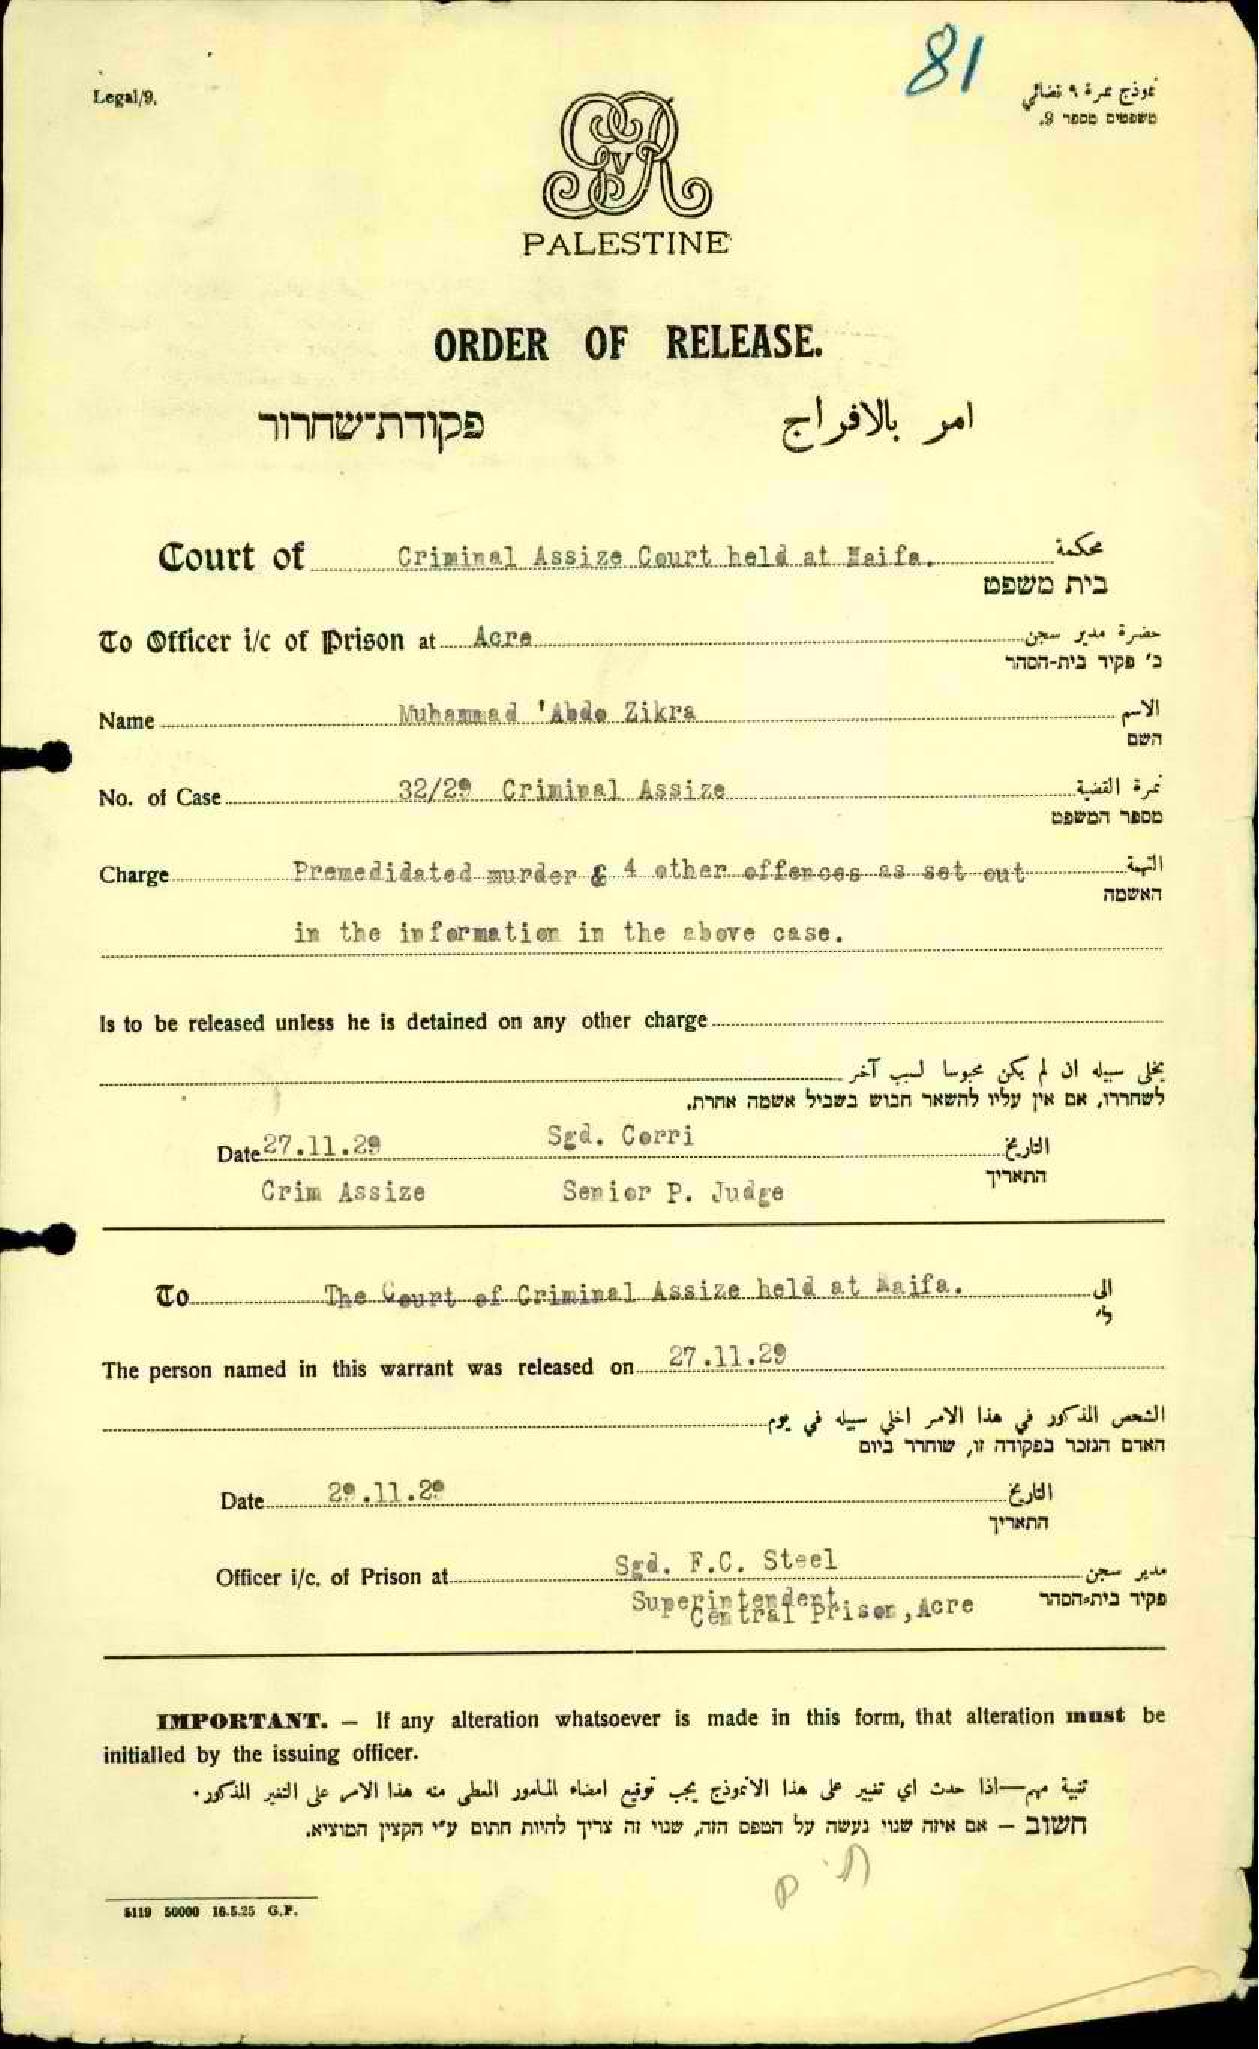 81
Legal/9.
نموذج نمرة ٩ قضائي
משפטים מספר 9.
GVR
PALESTINE
ORDER OF RELEASE.
امر بالافراج
פקודת־שחרור
Court of Criminal Assize Court held at Haifa. محكمة
בית משפט
To Officer i/c of Prison at Acre حضرة مدير سجن
כ' פקיד בית-הסהר
Name Muhammad 'Abdo Zikra الاسم
השם
No. of Case 32/29 Criminal Assize نمرة القضية
מספר המשפט
Charge Premedidated murder & 4 other offences as set out التهمة
האשמה
in the information in the above case.
Is to be released unless he is detained on any other charge
يخلى سبيله ان لم يكن محبوسا لسبب آخر
לשחררו, אם אין עליו להשאר חבוש בשביל אשמה אחרת.
Date 27.11.29 Sgd. Corri التاريخ
התאריך
Crim Assize Senior P. Judge
To The Court of Criminal Assize held at Haifa. الى
ל'
The person named in this warrant was released on 27.11.29
الشخص المذكور في هذا الامر اخلي سبيله في يوم
האדם הנזכר בפקודה זו, שוחרר ביום
Date 29.11.29 التاريخ
התאריך
Officer i/c. of Prison at Sgd. F.C. Steel مدير سجن
פקיד בית-הסהר
Superintendent
Central Prison, Acre
IMPORTANT. – If any alteration whatsoever is made in this form, that alteration must be
initialled by the issuing officer.
تنبية مهم—اذا حدث اي تغيير على هذا الانموذج يجب توقيع امضاء المأمور المعطى منه هذا الامر على التغير المذكور.
חשוב – אם איזה שנוי נעשה על הטפס הזה, שנוי זה צריך להיות חתום ע"י הקצין המוציא.
5119 50000 16.5.25 G.P.